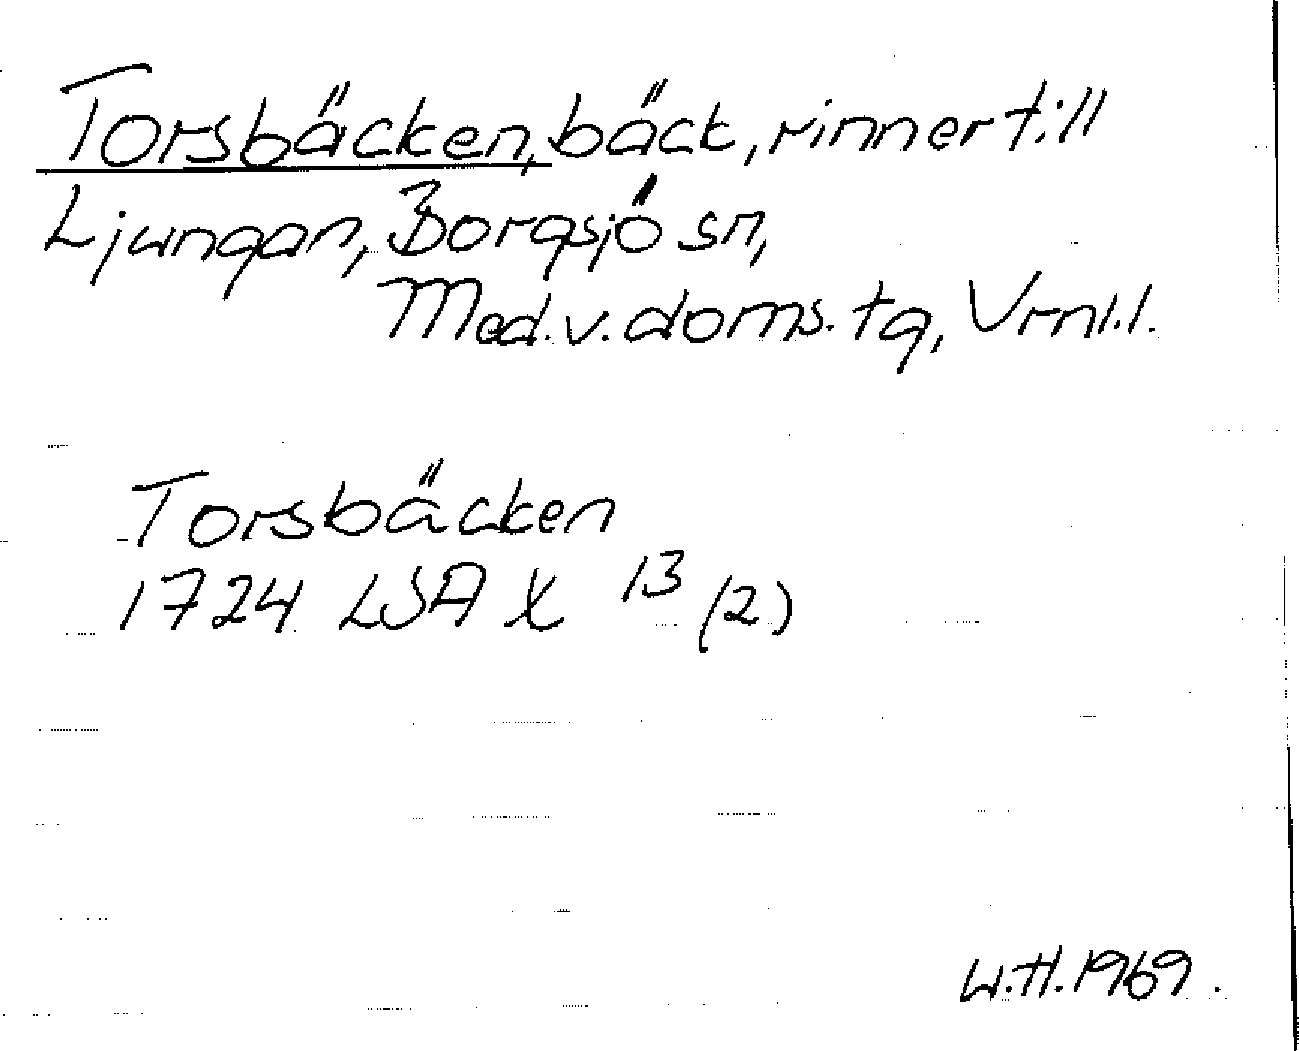 Torsbäcken, bäck, rinner till
Ljungan, Borgsjö sn,
Med.v.doms.tg, Vrnl.l.
Torsbäcken
1724 LSA X 13 (2)
W.H.1969.